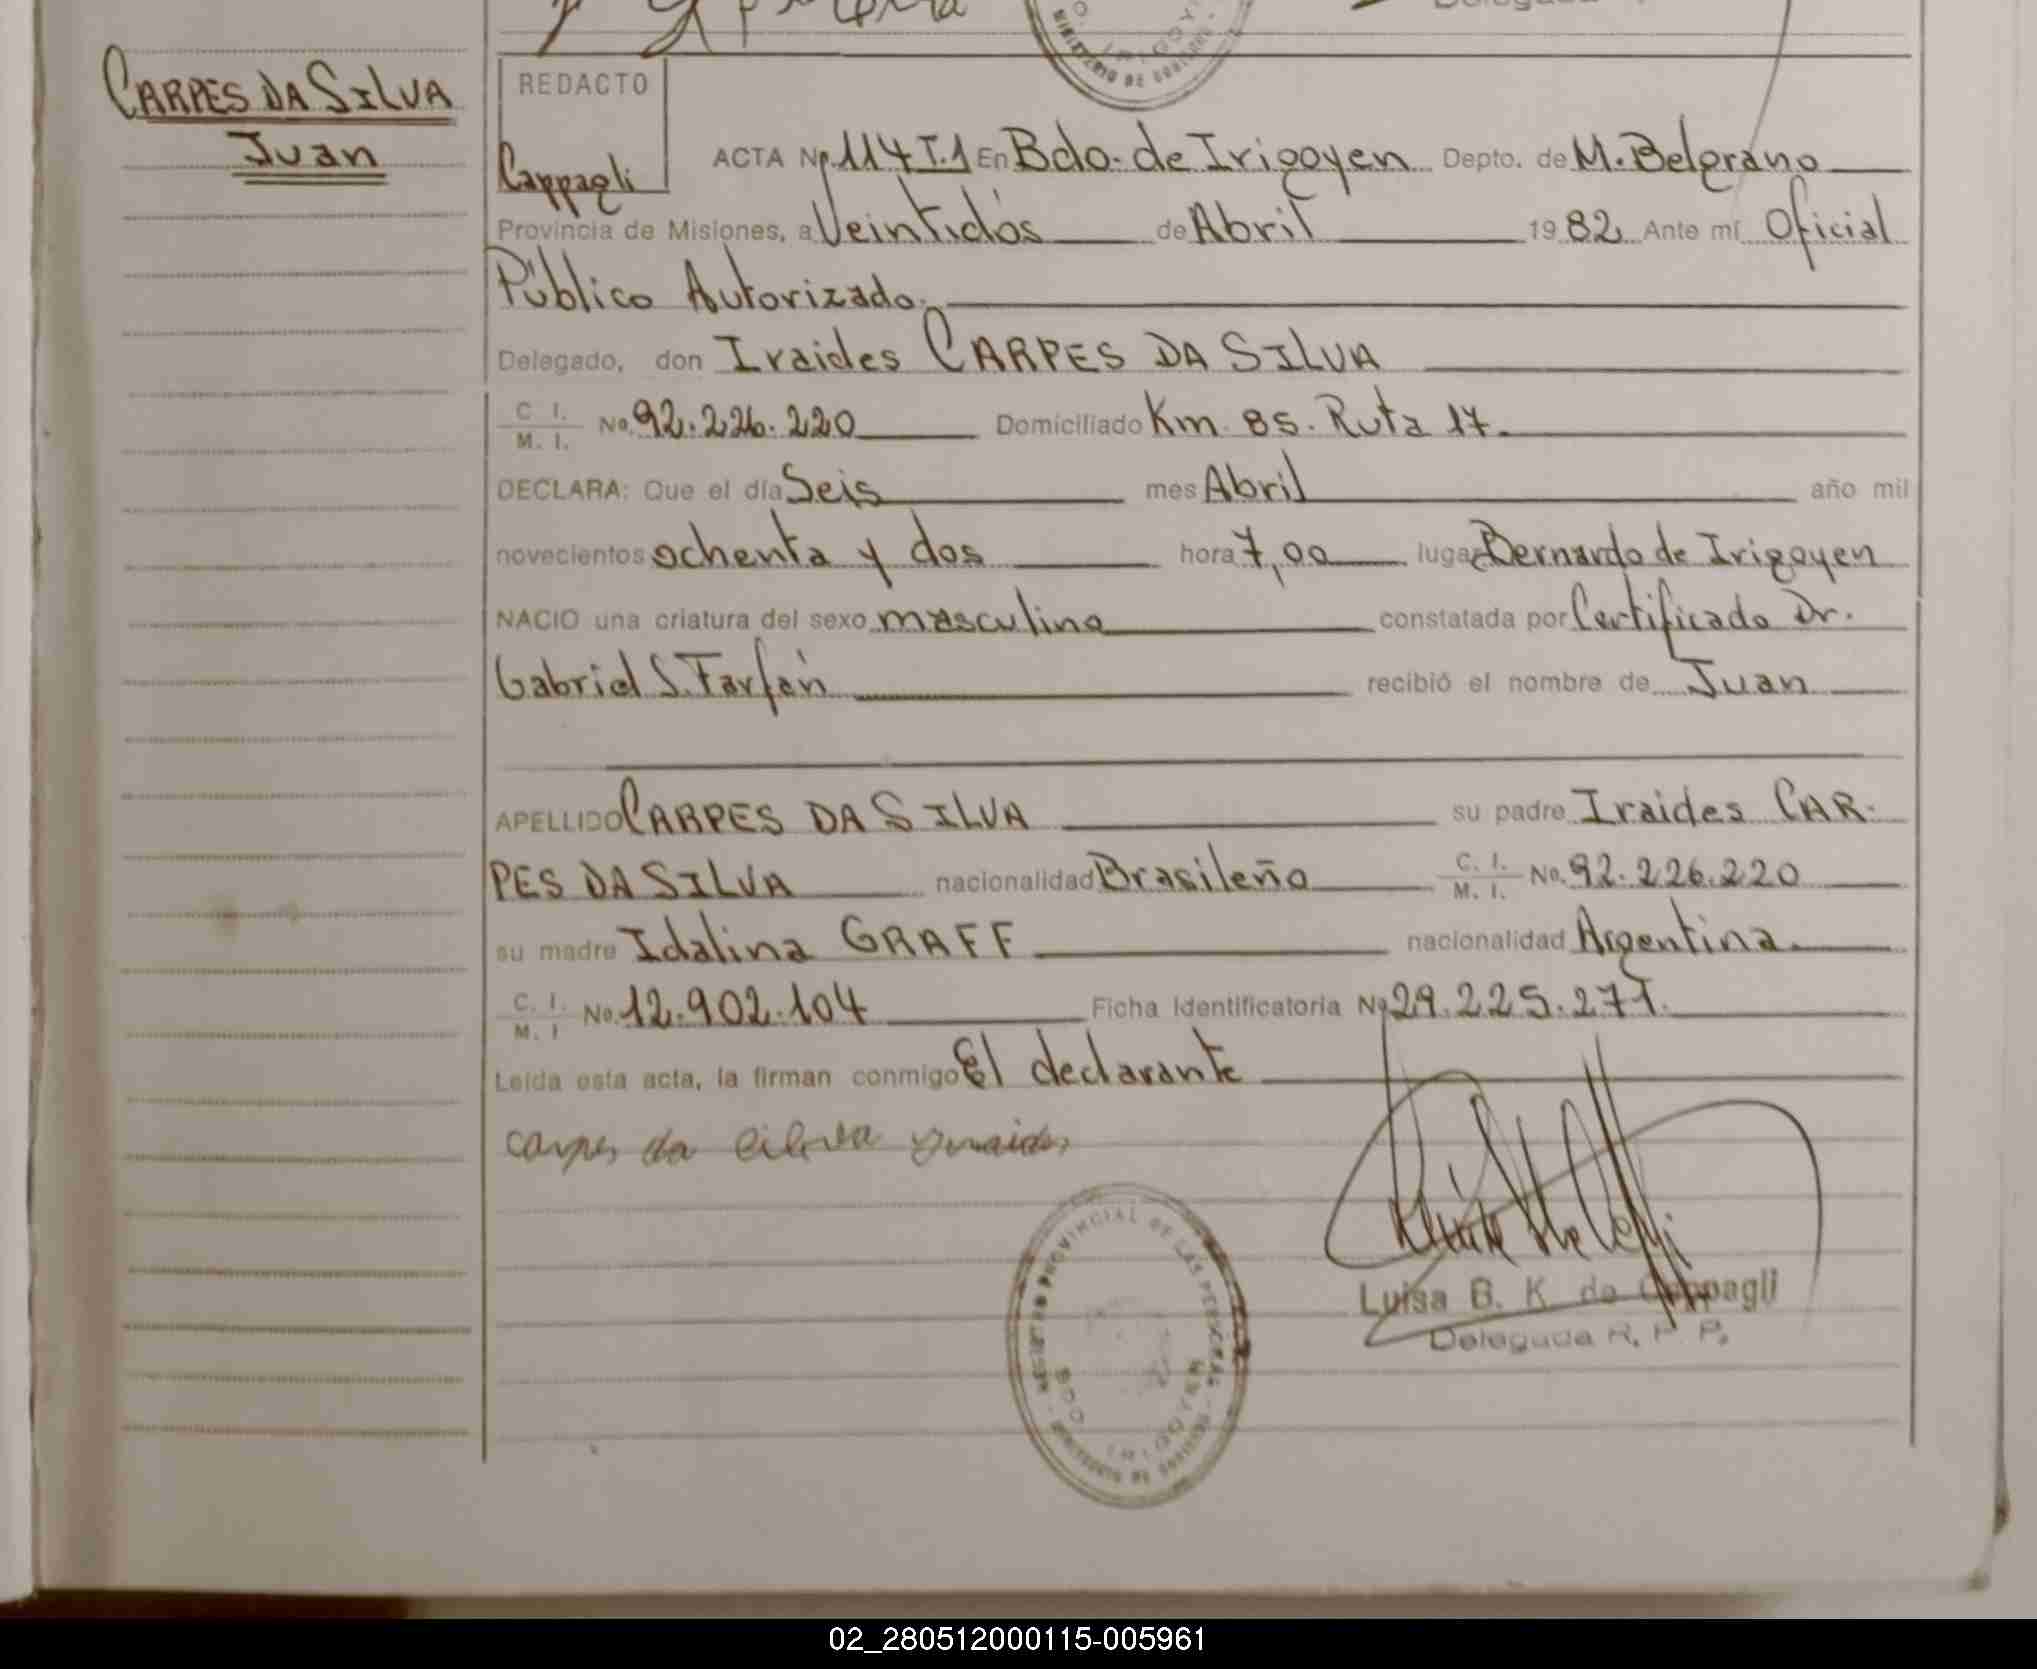 CARPES DA SILVA
Juan
REDACTO
Cappagli
ACTA No. 114 T.1 En Bdo. de Irigoyen Depto. de M. Belgrano
Provincia de Misiones, a Veintidós de Abril 1982 Ante mí Oficial
Público Autorizado.
Delegado, don Iraides CARPES DA SILVA
C. I. / M. I. No. 92.226.220 Domiciliado Km. 85. Ruta 17.
DECLARA: Que el día Seis mes Abril año mil
novecientos ochenta y dos hora 7,00 lugar Bernardo de Irigoyen
NACIO una criatura del sexo masculino constatada por Certificado Dr.
Gabriel S. Farfán recibió el nombre de Juan
APELLIDO CARPES DA SILVA su padre Iraides CAR-
PES DA SILVA nacionalidad Brasileño C. I. / M. I. No. 92.226.220
su madre Idalina GRAFF nacionalidad Argentina.
C. I. / M. I No. 12.902.104 Ficha Identificatoria No 29.225.277.
Leída esta acta, la firman conmigo El declarante
carpes da silva
REGISTRO PROVINCIAL DE LAS PERSONAS
BDO IRIGOYEN
MINISTERIO DE GOBIERNO
Luisa B. K. de Cappagli
Delegada R. P. P.
02_280512000115-005961